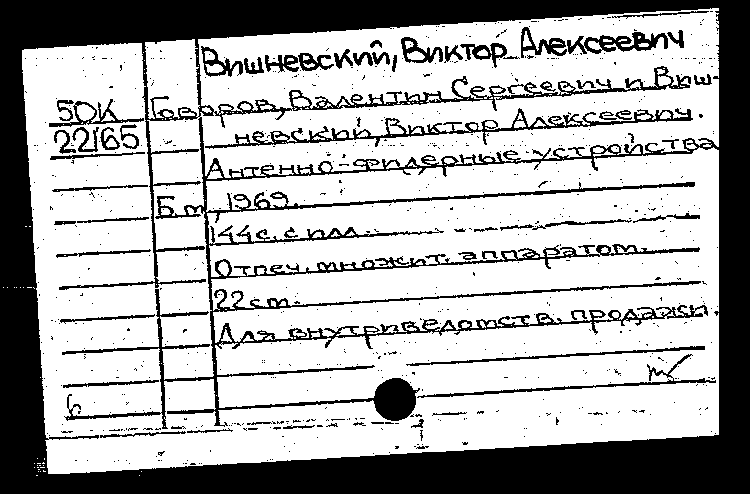 Вишневский, Виктор Алексеевич
50К Говоров, Валентин Сергеевич и Виш-
22165 невский, Виктор Алексеевич.
Антенно-фидерные устройства
Б.м., 1969.
144с. с илл.
Отпеч. множит. аппаратом.
22 см.
Для внутриведомств. продажи.